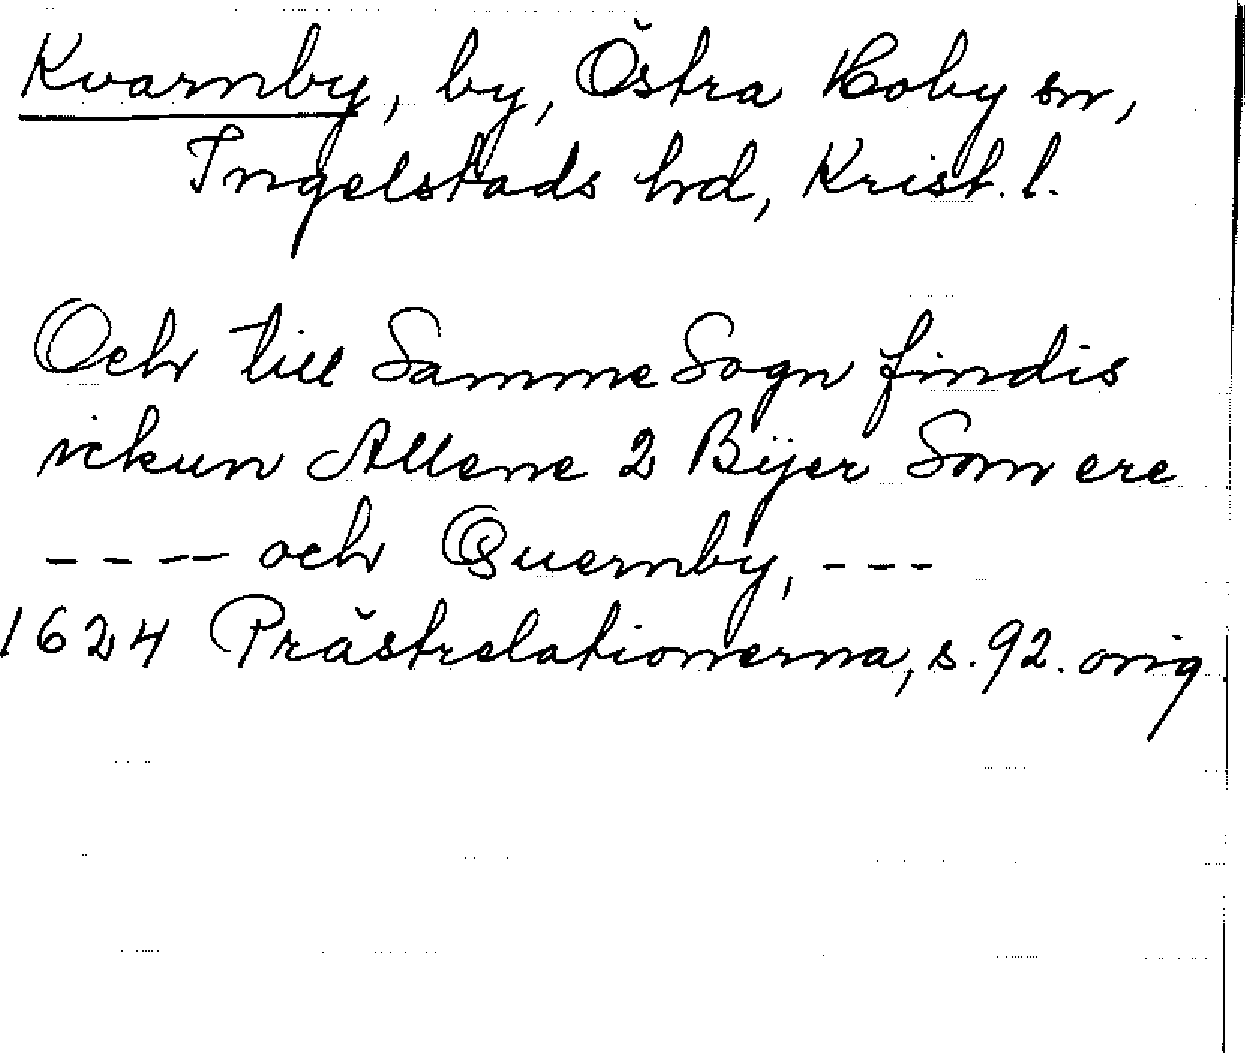 Kvarnby, by, Östra Hoby sn,
Ingelstads hd, Krist. l.
Och till Samme Sogn findis
ickun Allene 2 Bÿer Som ere
---- och Quernby, ---
1624 Prästrelationerna, s. 92. orig